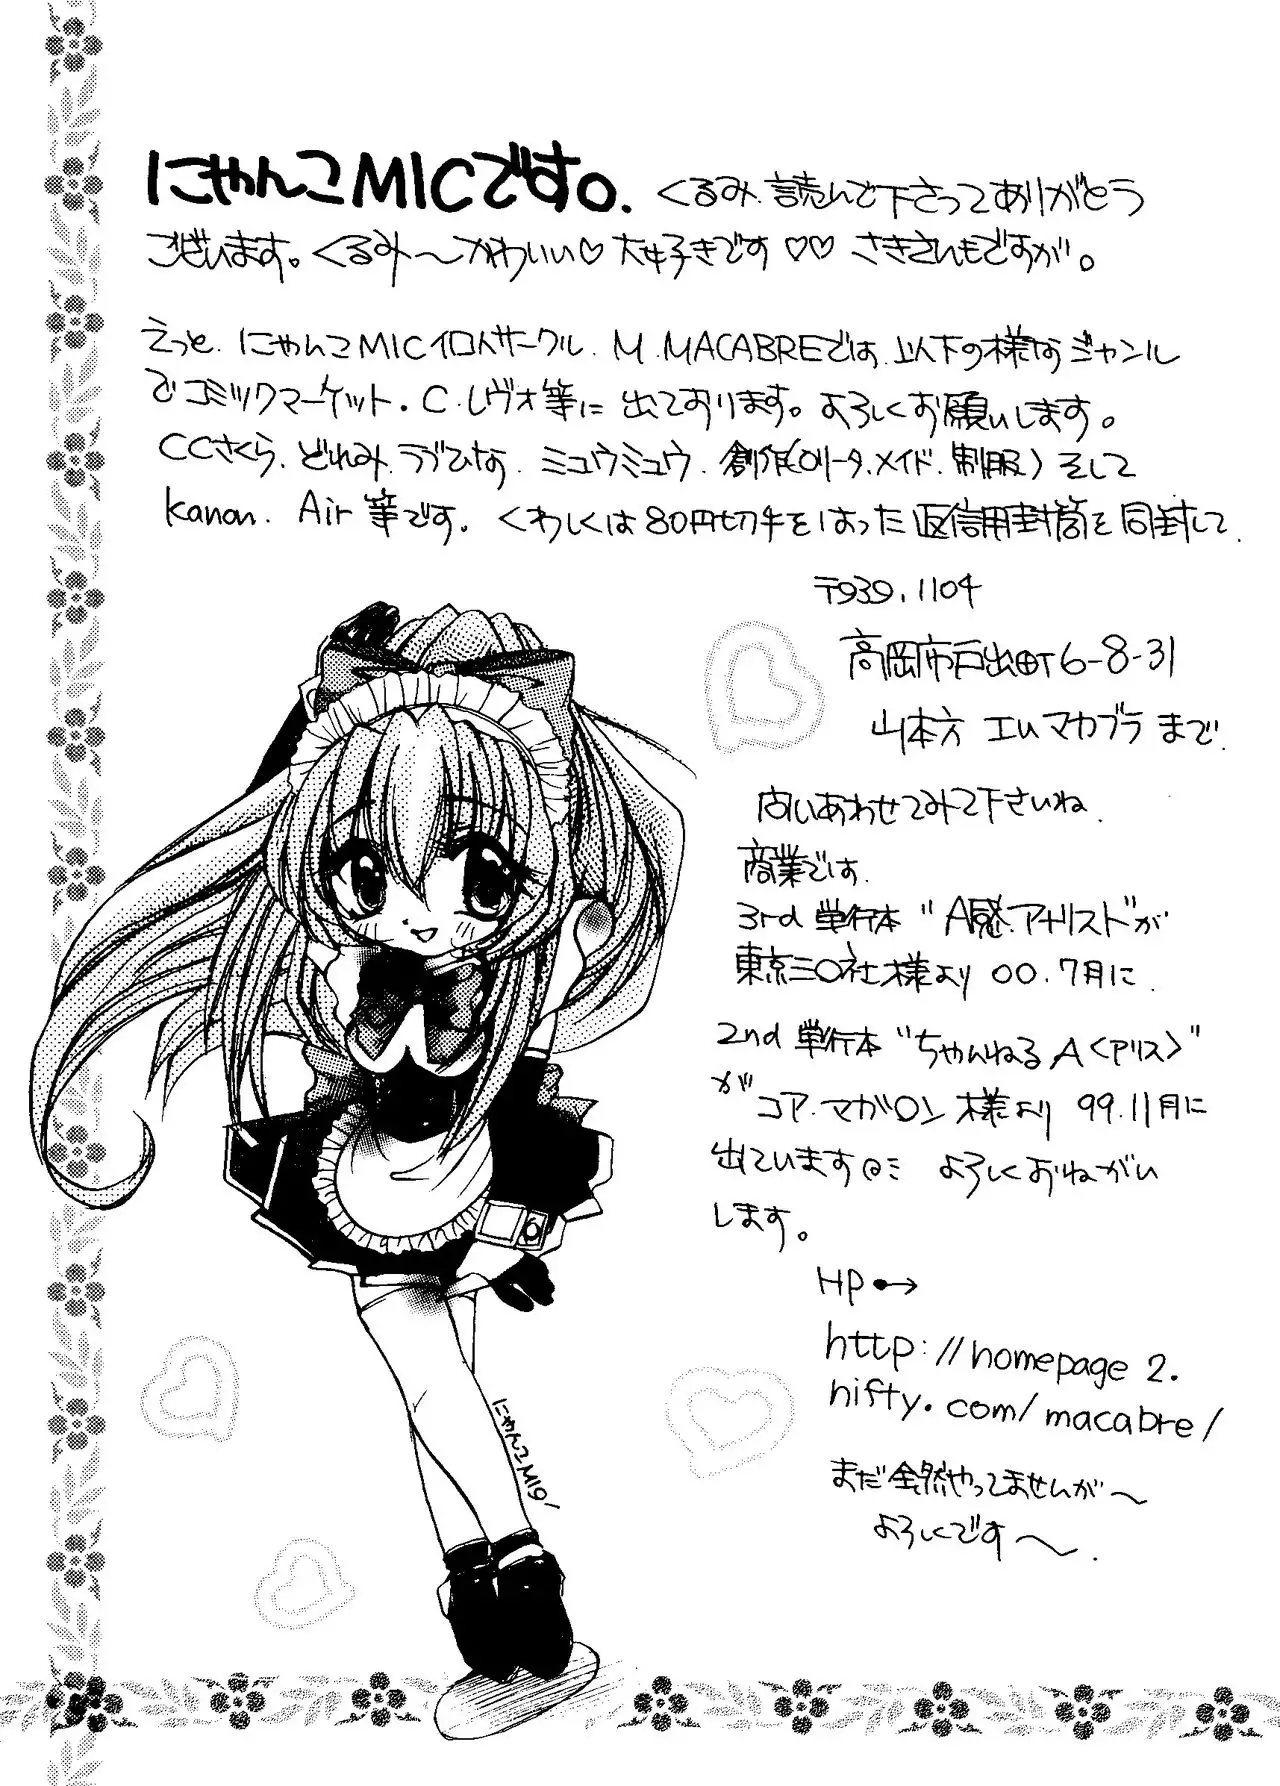 にゃんこMICです。くるみ、読んで下さってありがとう
ございます。くるみ〜かわいい♡大好きです♡♡さきさんもですが。
えっと、にゃんこMIC個人サークル、M.MACABREでは、以下の様なジャンル
でコミックマーケット・C.レヴォ等に出ております。よろしくお願いします。
CCさくら、どれみ、ラブひな、ミュウミュウ、創作(ロリータ、メイド、制服)そして
kanon、Air等です。くわしくは80円切手をはった返信用封筒を同封して、
〒939.1104
高岡市戸出町6-8-31
山本方 エムマカブラまで、
問いあわせてみて下さいね。
商業では、
3rd 単行本"A感.アナリスト"が
東京三〇社様より 00.7月に、
2nd 単行本"ちゃんねるA<アリス>"
がコア.マガ〇ン様より 99.11月に
出ています よろしくおねがい
します。
HP●→
http://homepage2.
nifty.com/macabre/
まだ全然やってませんが〜
よろしくです〜。
にゃんこMIC